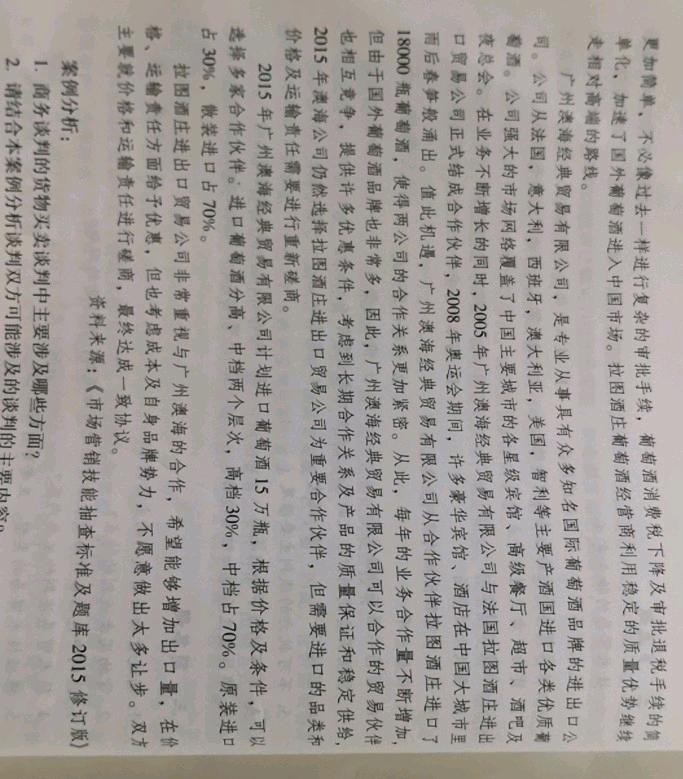 更加简单，不必像过去一样进行复杂的审批手续，葡萄酒消费税下降及审批退税手续的简
单化，加速了国外葡萄酒进入中国市场。拉图酒庄葡萄酒经营商利用稳定的质量优势继续
走相对高端的路线。
广州澳海经典贸易有限公司，是专业从事具有众多知名国际葡萄酒品牌的进出口公
司。公司从法国，意大利，西班牙，澳大利亚，美国，智利等主要产酒国进口各类优质葡
萄酒。公司强大的市场网络覆盖了中国主要城市的各星级宾馆、高级餐厅、超市、酒吧及
夜总会。在业务不断增长的同时，2005年广州澳海经典贸易有限公司与法国拉图酒庄进出
口贸易公司正式结成合作伙伴，2008年奥运会期间，许多豪华宾馆、酒店在中国大城市里
雨后春笋般涌出。值此机遇，广州澳海经典贸易有限公司从合作伙伴拉图酒庄进口了
18000瓶葡萄酒，使得两公司的合作关系更加紧密。从此，每年的业务合作量不断增加，
但由于国外葡萄酒品牌也非常多，因此，广州澳海经典贸易有限公司可以合作的贸易伙伴
也相互竞争，提供许多优惠条件，考虑到长期合作关系及产品的质量保证和稳定供给，
2015年澳海公司仍然选择拉图酒庄进出口贸易公司为重要合作伙伴，但需要进口的品类和
价格及运输责任需要进行重新磋商。
2015年广州澳海经典贸易有限公司计划进口葡萄酒15万瓶，根据价格及条件，可以
选择多家合作伙伴。进口葡萄酒分高、中档两个层次，高档30%，中档占70%。原装进口
占30%，散装进口占70%。
拉图酒庄进出口贸易公司非常重视与广州澳海的合作，希望能够增加出口量，在价
格、运输责任方面给予优惠，但也考虑成本及自身品牌势力，不愿意做出太多让步。双方
主要就价格和运输责任进行磋商，最终达成一致协议。
资料来源：《市场营销技能抽查标准及题库2015修订版》
案例分析：
1. 商务谈判的货物买卖谈判中主要涉及哪些方面？
2. 请结合本案例分析谈判双方可能涉及的谈判的主要内容？